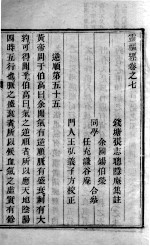 靈樞經卷之七
錢塘張志聰隱庵集註
同學
余國錫伯榮
任 谷庵
合
門人王弘義子方校正
逆順第五十五
黃帝問于伯高曰余聞氣有逆順脈有盛衰刺有大
約可得聞乎伯高曰氣之逆順者所以應天地陰陽
四時五行也脈之盛衰者所以候血氣之虛實有餘